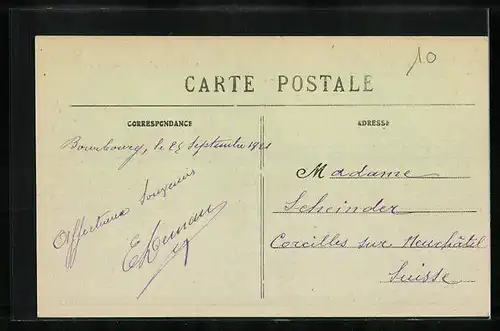 10
CARTE POSTALE
CORRESPONDANCE
ADRESSE
Bourbourg, le 25 Septembre 1921
Affectueux Souvenirs
Madame
Scheinder
Corcilles sur Neuchâtel
Suisse